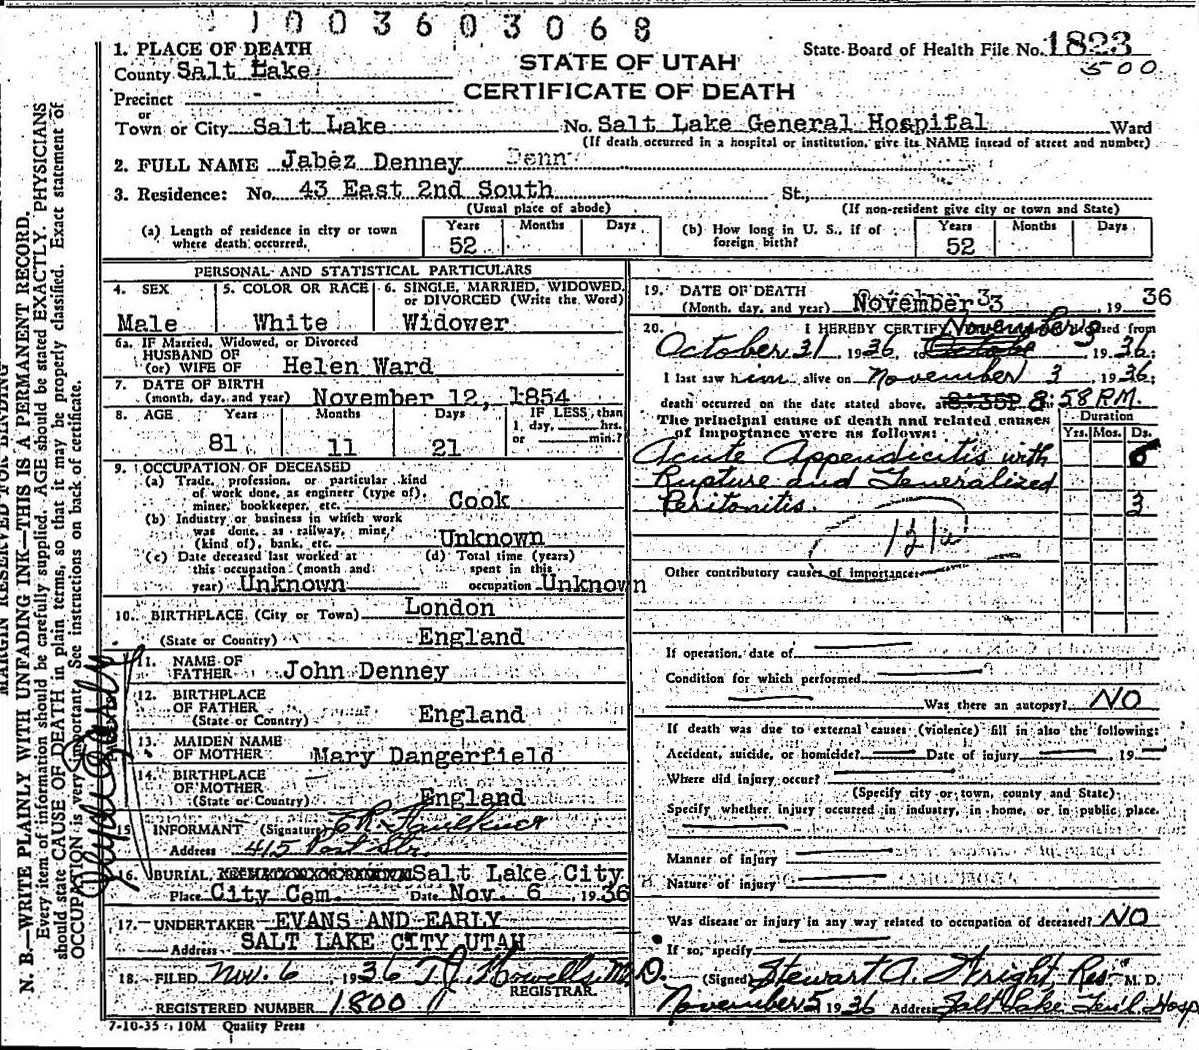 1003603068
1. PLACE OF DEATH
State Board of Health File No. 1823
500
County Salt Lake
STATE OF UTAH
CERTIFICATE OF DEATH
Precinct
or
Town or City Salt Lake No. Salt Lake General Hospital Ward
(If death occurred in a hospital or institution, give its NAME instead of street and number)
2. FULL NAME Jabez Denney Denn
3. Residence: No. 43 East 2nd South St.,
(Usual place of abode) (If non-resident give city or town and State)
(a) Length of residence in city or town where death occurred. Years 52 Months Days
(b) How long in U. S., if of foreign birth? Years 52 Months Days
PERSONAL AND STATISTICAL PARTICULARS
4. SEX Male
5. COLOR OR RACE White
6. SINGLE, MARRIED, WIDOWED, or DIVORCED (Write the Word) Widower
6a. IF Married, Widowed, or Divorced
HUSBAND OF
(or) WIFE OF Helen Ward
7. DATE OF BIRTH
(month, day, and year) November 12, 1854
8. AGE Years 81 Months 11 Days 21 IF LESS than 1 day, hrs. or min.?
9. OCCUPATION OF DECEASED
(a) Trade, profession, or particular kind
of work done, as engineer (type of),
miner, bookkeeper, etc. Cook
(b) Industry or business in which work
was done, as railway, mine,
(kind of), bank, etc. Unknown
(c) Date deceased last worked at this occupation (month and year) Unknown
(d) Total time (years) spent in this occupation Unknown
10. BIRTHPLACE (City or Town) London
(State or Country) England
11. NAME OF
FATHER John Denney
12. BIRTHPLACE
OF FATHER
(State or Country) England
13. MAIDEN NAME
OF MOTHER Mary Dangerfield
14. BIRTHPLACE
OF MOTHER
(State or Country) England
15 INFORMANT (Signature) Faulkner
Address 415
16. BURIAL, Salt Lake City
Place City Cem. Date Nov. 6 1936
17. UNDERTAKER EVANS AND EARLY
Address SALT LAKE CITY UTAH
18. FILED Nov. 6 1936 T. J. Howells, M.D.
REGISTRAR
REGISTERED NUMBER 1800
7-10-35 10M Quality Press
19. DATE OF DEATH
(Month, day, and year) November 3 3 1936
20. I HEREBY CERTIFY November 3 from
October 31 1936, to 1936;
I last saw him alive on November 3 1936;
death occurred on the date stated above, at 8:35P 8:58 P.M.
The principal cause of death and related causes
of importance were as follows:
Duration
Yrs. Mos. Ds.
Acute Appendicitis with
Rupture and Generalized
Peritonitis. 3
121a
Other contributory causes of importance:
If operation, date of
Condition for which performed
Was there an autopsy? NO
If death was due to external causes (violence) fill in also the following:
Accident, suicide, or homicide? Date of injury 19
Where did injury occur?
(Specify city or town, county and State)
Specify whether injury occurred in industry, in home, or in public place.
Manner of injury
Nature of injury
Was disease or injury in any way related to occupation of deceased? NO
If so, specify
(Signed) Stewart A. Wright, Res- M. D.
November 5 1936 Address Salt Lake Hosp
MARGIN RESERVED FOR BINDING
N. B.—WRITE PLAINLY WITH UNFADING INK—THIS IS A PERMANENT RECORD.
Every item of information should be carefully supplied. AGE should be stated EXACTLY. PHYSICIANS
should state CAUSE OF DEATH in plain terms, so that it may be properly classified. Exact statement of
OCCUPATION is very important. See instructions on back of certificate.